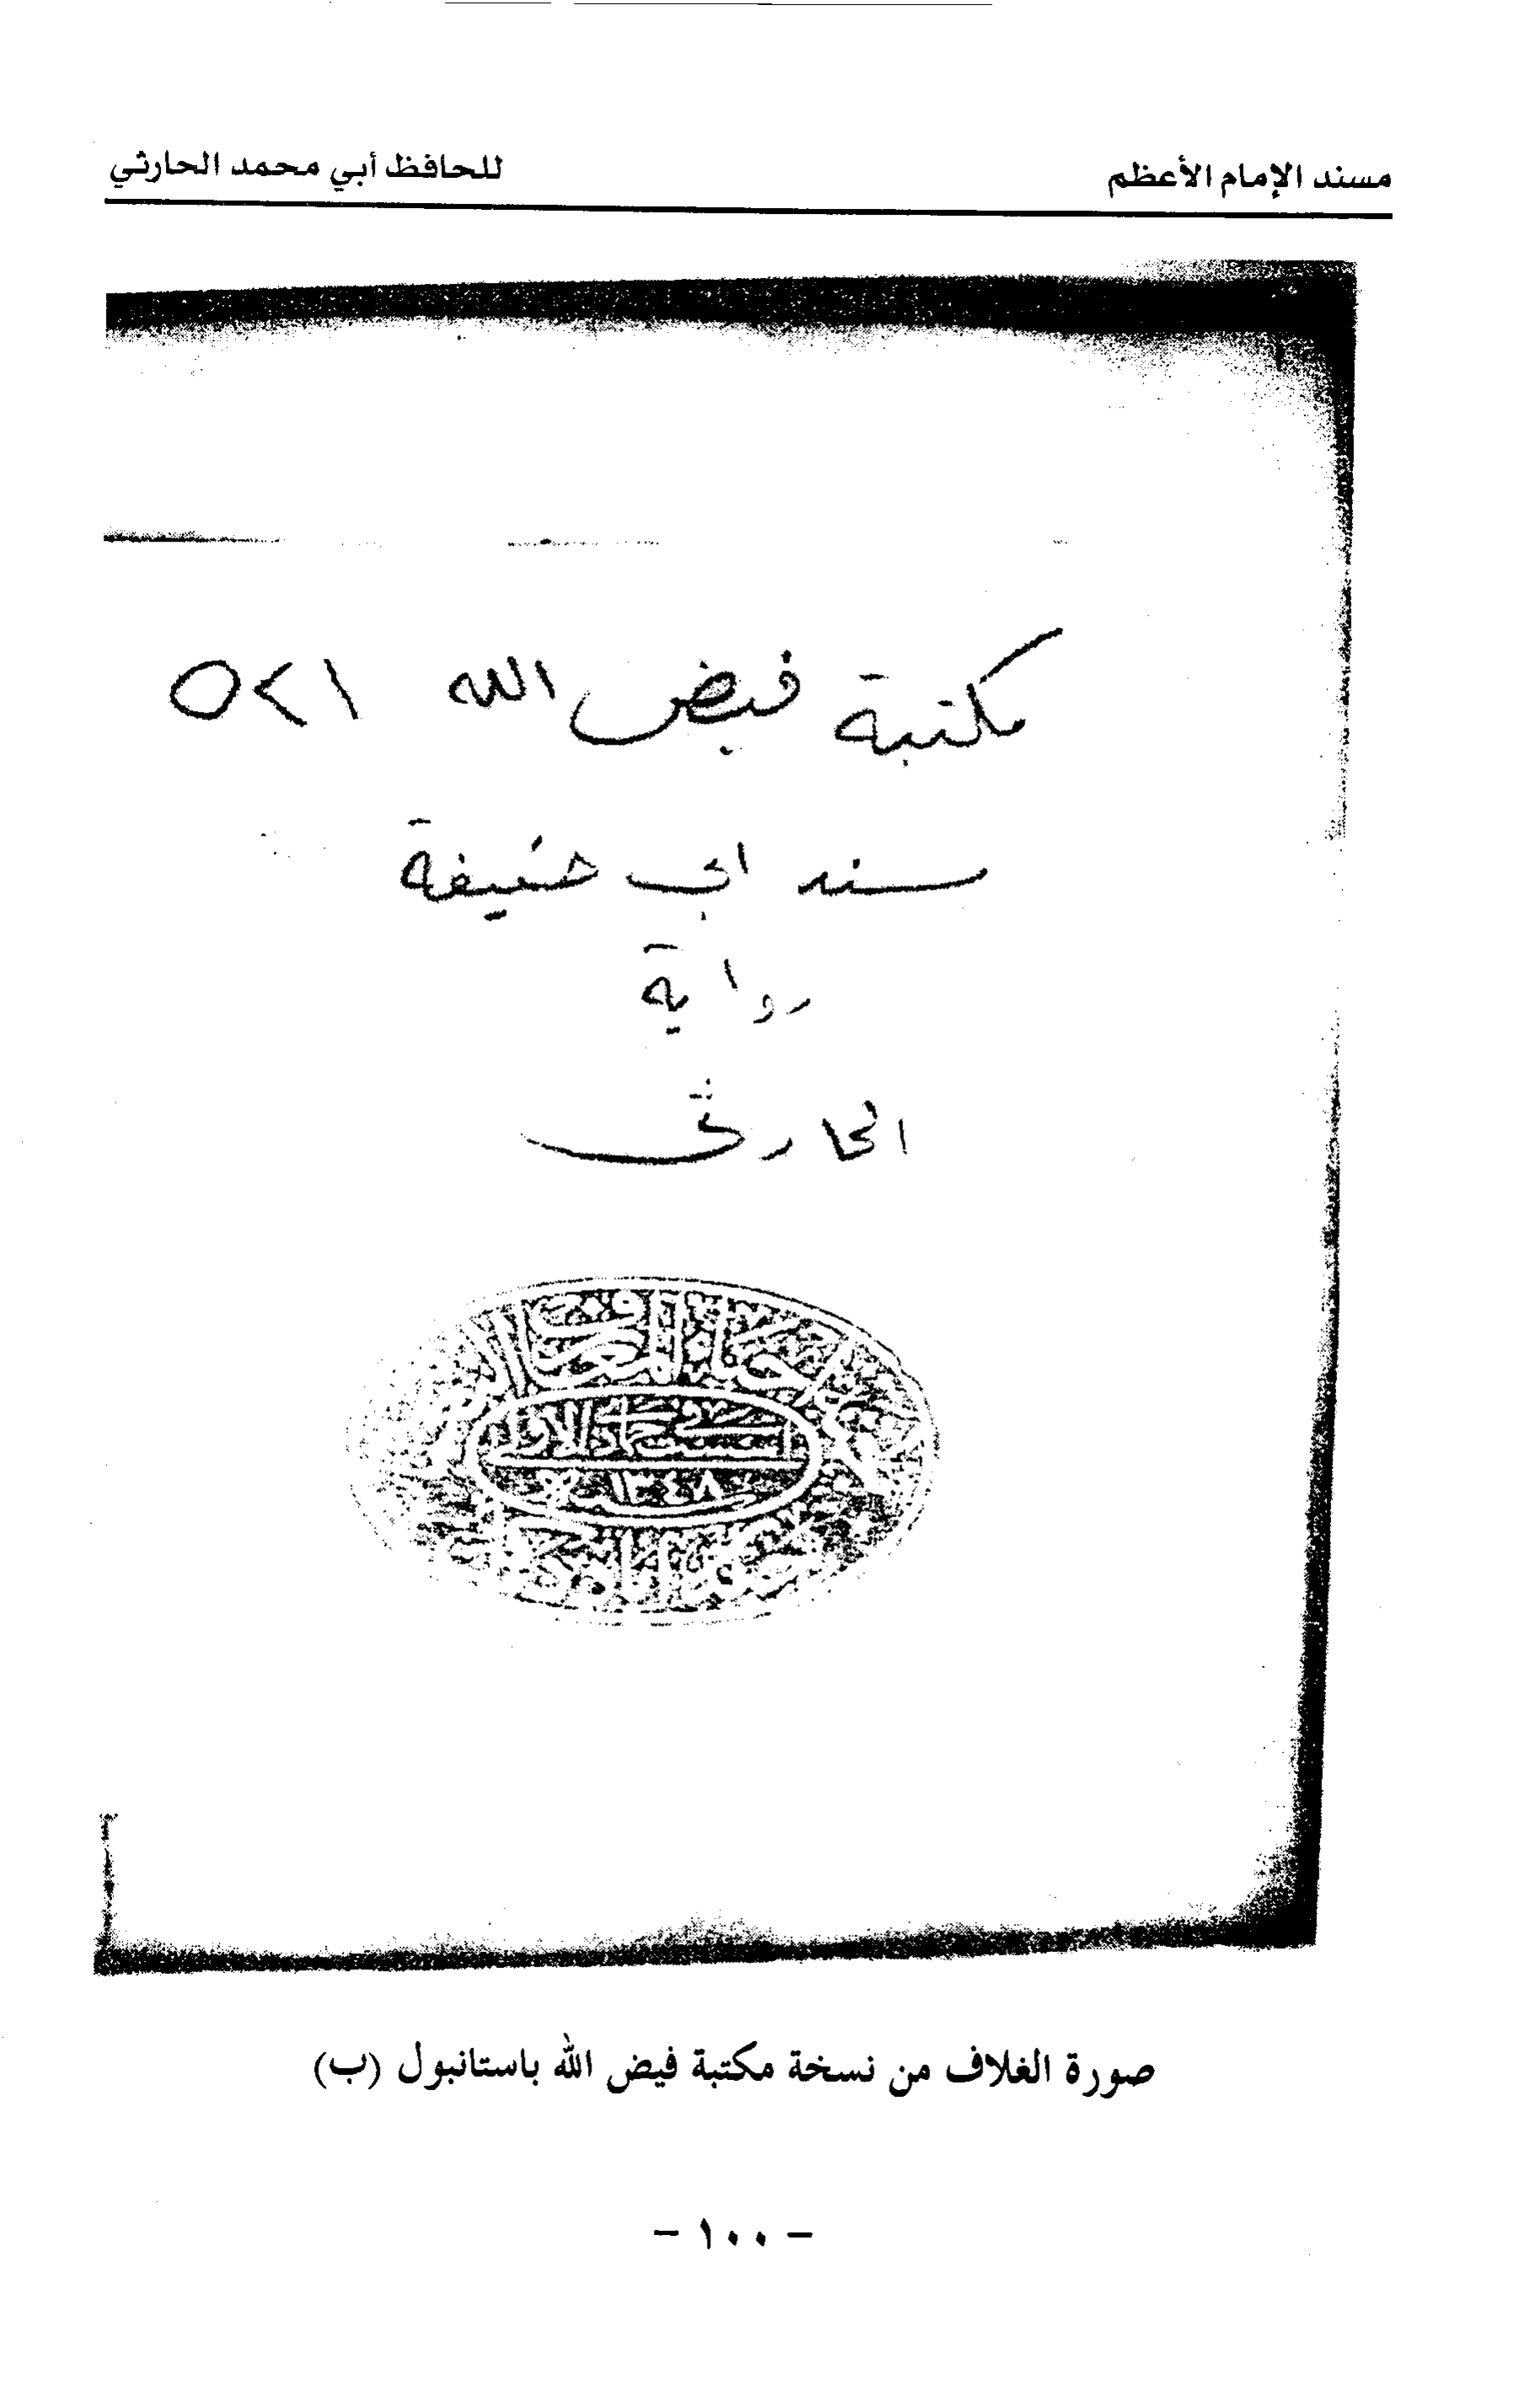 مسند الإمام الأعظم للحافظ أبي محمد الحارثي
مكتبة فيض الله ٥٢١
سند ابي حنيفة
رواية
الحارثي
١٣٤٨
صورة الغلاف من نسخة مكتبة فيض الله باستانبول (ب)
- ١٠٠ -